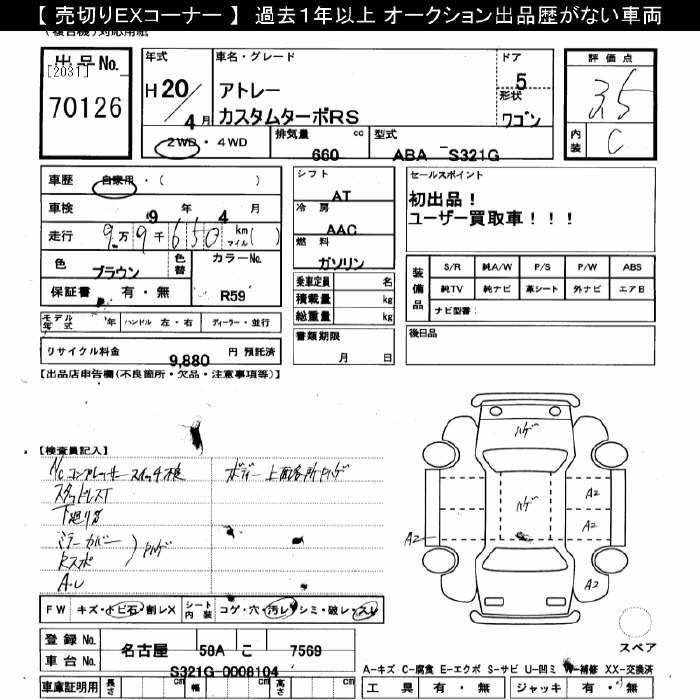 【 売切りEXコーナー 】 過去１年以上 オークション出品歴がない車両
出 品 No.
[2031]
70126
年式
H 20 / 4 月
車名・グレード
アトレー
カスタムターボRS
ドア
5
形状
ワゴン
2WD ・ 4WD
排気量 cc
660
型式
ABA S321G
評 価 点
3.5
内装
C
車歴 自家用 ・( )
車検 9 年 4 月
走行 9 万 9 千 6 5 0 km マイル ( )
色
ブラウン
色替
カラーNo.
R59
保証書 有 ・ 無
モデル年式 年 ハンドル 左 ・ 右 ディーラー ・ 並行
リサイクル料金 9,880 円 預託済
シフト
AT
冷 房
AAC
燃 料
ガソリン
乗車定員 名
積載量 kg
総重量 kg
書類期限
月 日
セールスポイント
初出品！
ユーザー買取車！！！
装備品
S/R 純A/W P/S P/W ABS
純TV 純ナビ 革シート 外ナビ エアB
ナビ型番：
後日品
【出品店申告欄(不良箇所・欠品・注意事項等)】
【検査員記入】
A/C コンプレッサースイッチ不良
スタッドレスT
下廻りサビ
ミラーカバー
Rスポ
ハゲ
ボディー上面各所
ハゲ
ハゲ
A2
A2
A2
A2
F W キズ・トビ石・割レX シート内装 コゲ・穴・汚レ・シミ・破レ・スレ
登 録 No. 名古屋 58A こ 7569
車 台 No. S321G-0008104
車庫証明用 長さ cm 幅 cm 高さ cm
スペア
A-キズ C-腐食 E-エクボ S-サビ U-凹ミ W-補修 XX-交換済
工 具 有 ・ 無 ジャッキ 有 ・ 無